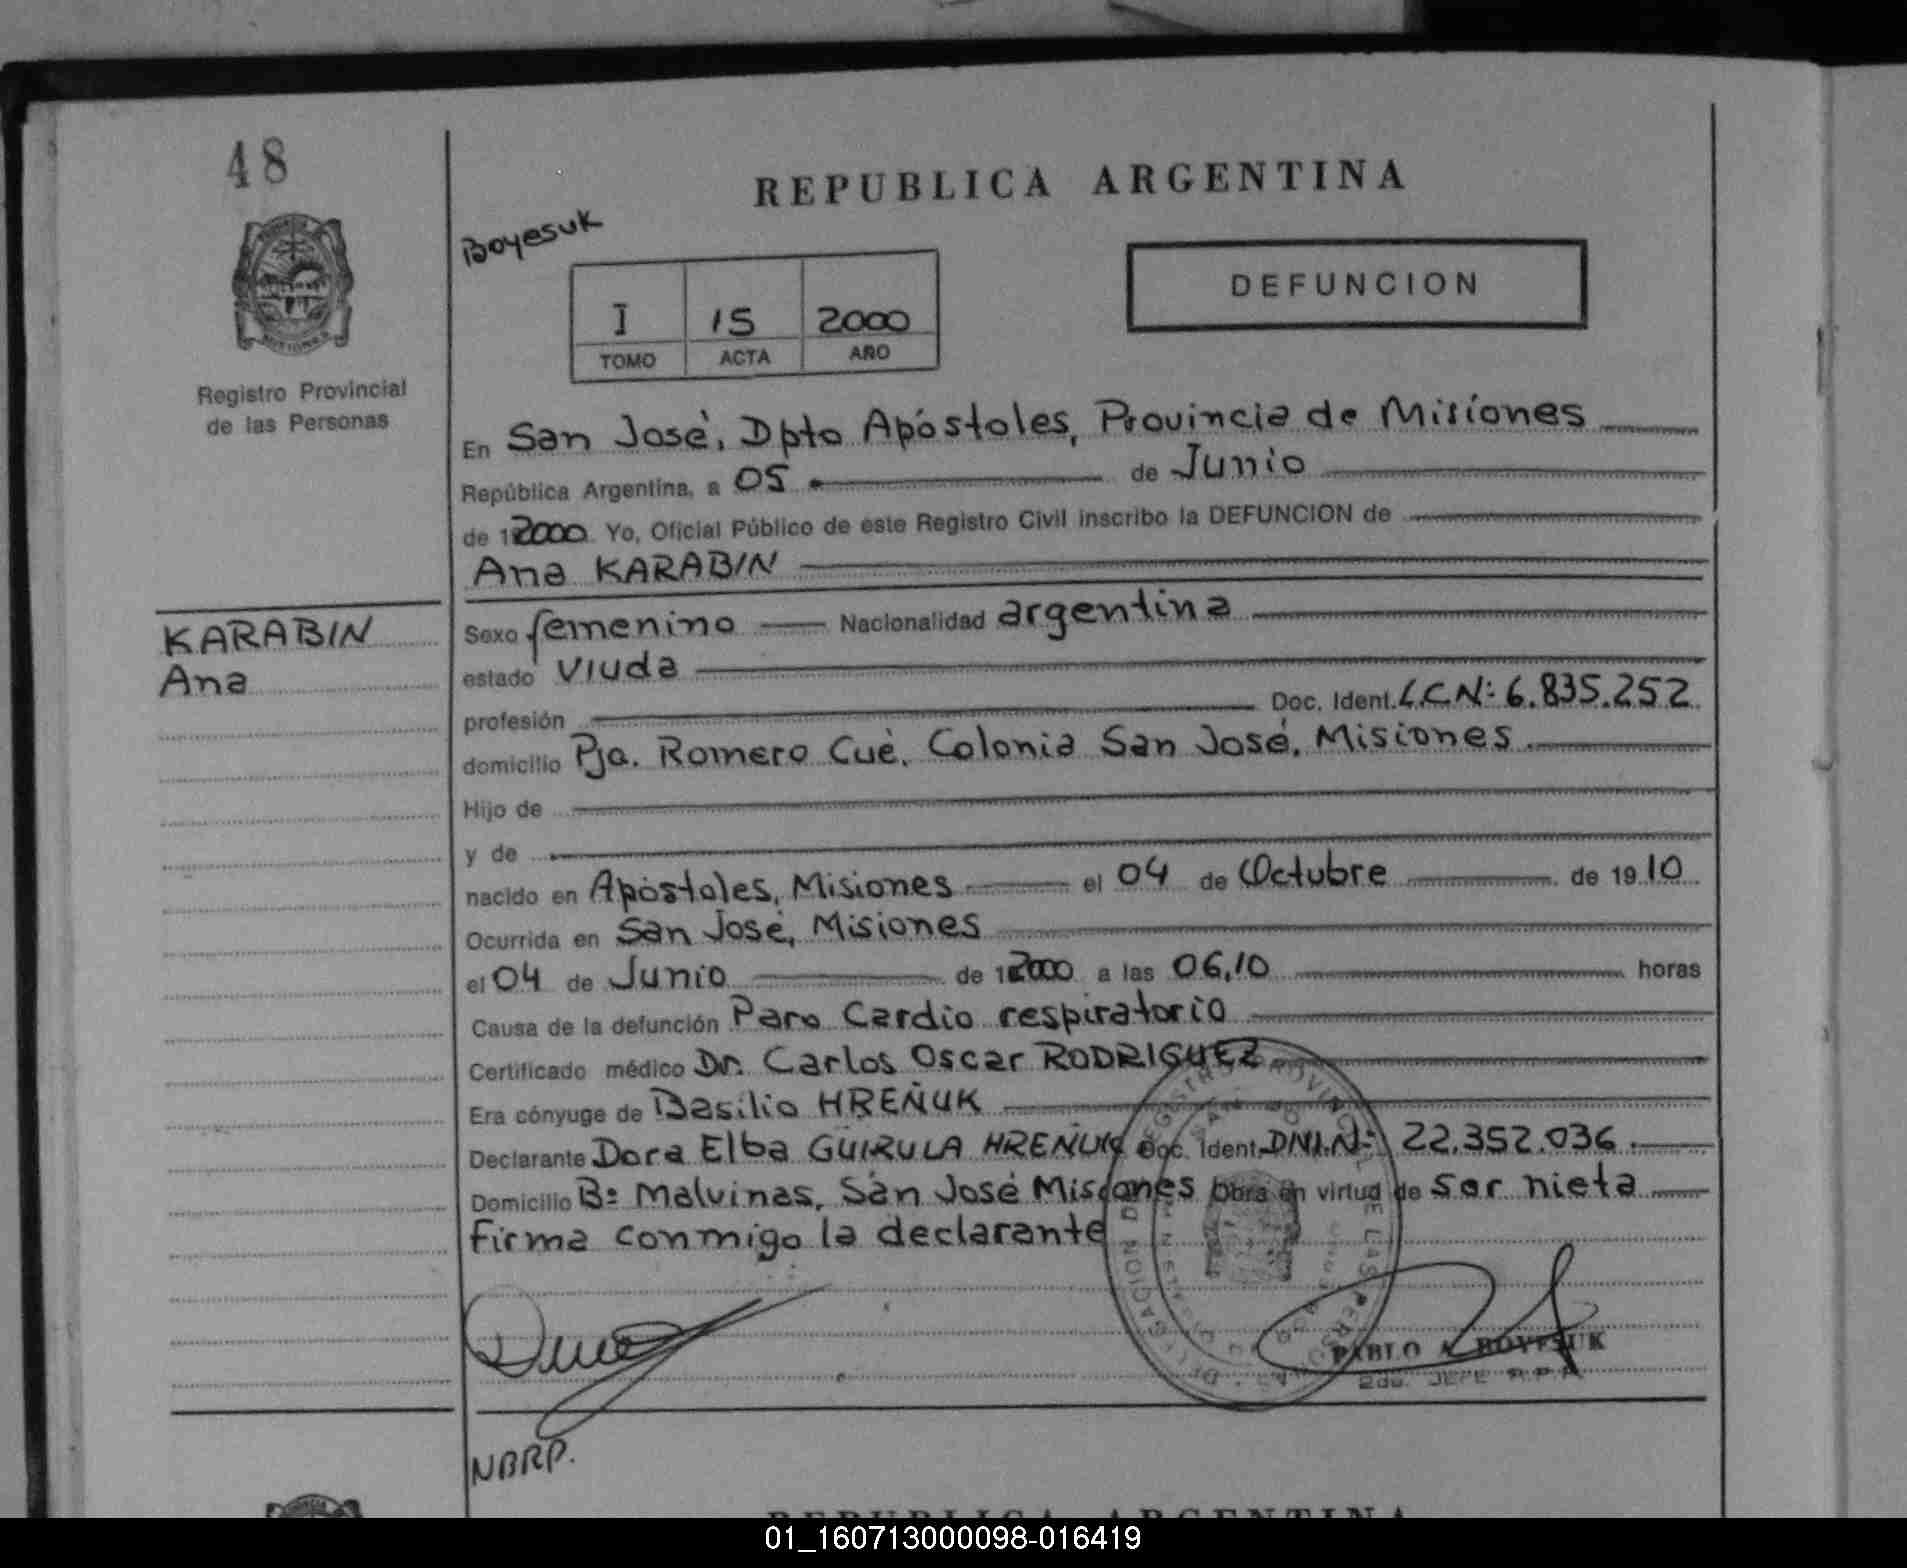 48
REPUBLICA ARGENTINA
Boyesuk
DEFUNCION
I 15 2000
TOMO ACTA AÑO
Registro Provincial
de las Personas
En San José, Dpto Apóstoles, Provincia de Misiones
República Argentina, a 05 de Junio
de 2000 Yo, Oficial Público de este Registro Civil inscribo la DEFUNCION de
Ana KARABIN
KARABIN
Ana
Sexo femenino Nacionalidad argentina
estado viuda
profesión Doc. Ident. L.C.Nº: 6.835.252
domicilio Pja. Romero Cué, Colonia San José, Misiones
Hijo de
y de
nacido en Apóstoles, Misiones el 04 de Octubre de 1910
Ocurrida en San José, Misiones
el 04 de Junio de 2000 a las 06,10 horas
Causa de la defunción Paro Cardio respiratorio
Certificado médico Dr. Carlos Oscar RODRIGUEZ
Era cónyuge de Basilio HREÑUK
Declarante Dora Elba GUIRULA HREÑUK Doc. Ident. DNI.Nº: 22.352.036
Domicilio Bº Malvinas, San José Misiones Obra en virtud de ser nieta
firma conmigo la declarante
PABLO A BOYESUK
2do. JEFE R.P.P.
NBRP.
REPUBLICA ARGENTINA
01_160713000098-016419